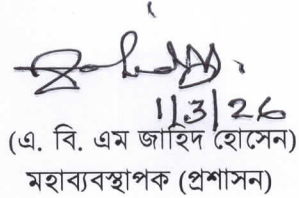 1/3/26
(এ. বি. এম জাহিদ হোসেন)
মহাব্যবস্থাপক (প্রশাসন)